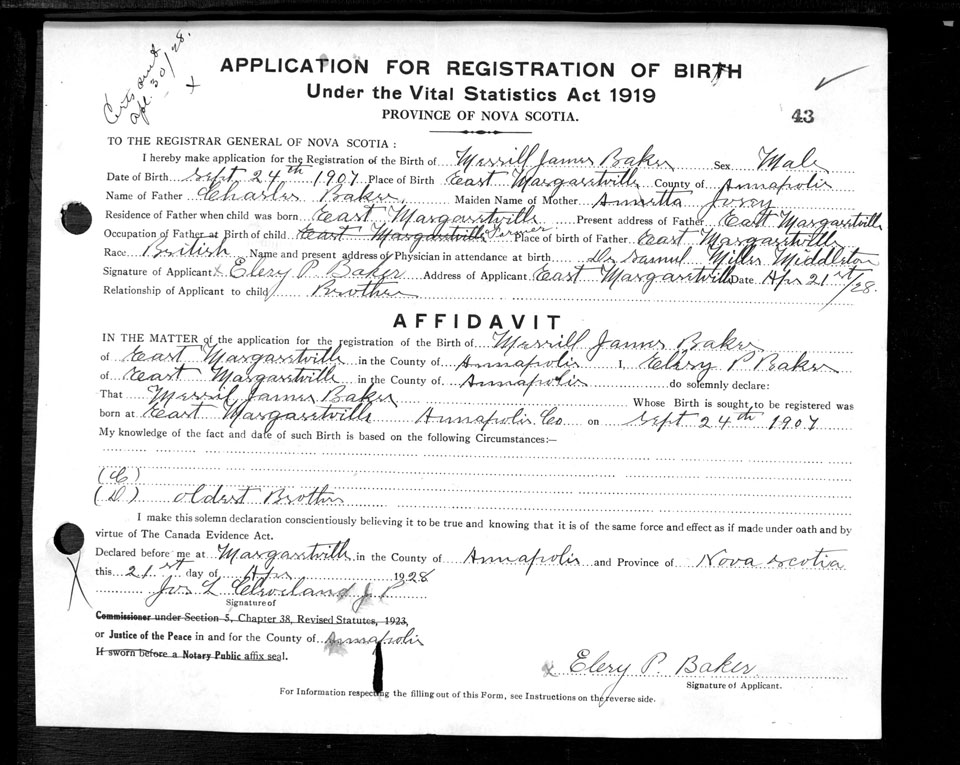 Certs sent
Apl. 30/28.
x
APPLICATION FOR REGISTRATION OF BIRTH
Under the Vital Statistics Act 1919
PROVINCE OF NOVA SCOTIA.
43
TO THE REGISTRAR GENERAL OF NOVA SCOTIA :
I hereby make application for the Registration of the Birth of Merrill James Baker Sex Male
Date of Birth Sept 24th 1907 Place of Birth East Margaretville County of Annapolis
Name of Father Charles Baker. Maiden Name of Mother Annetta
Residence of Father when child was born East Margaretville Present address of Father East Margaretville
Occupation of Father at Birth of child East Margaretville Farmer Place of birth of Father East Margaretville
Race British Name and present address of Physician in attendance at birth Dr Samuel Miller Middleton
Signature of Applicant x Elery P Baker Address of Applicant East Margaretville Date Apr 21st/28.
Relationship of Applicant to child Brother
AFFIDAVIT
IN THE MATTER of the application for the registration of the Birth of Merrill James Baker
of East Margaretville in the County of Annapolis I, Elery P Baker
of East Margaretville in the County of Annapolis do solemnly declare:
That Merril James Baker Whose Birth is sought to be registered was
born at East Margaretville Annapolis Co on Sept 24th 1907
My knowledge of the fact and date of such Birth is based on the following Circumstances:—
(C)
(D) oldest Brother
I make this solemn declaration conscientiously believing it to be true and knowing that it is of the same force and effect as if made under oath and by
virtue of The Canada Evidence Act.
Declared before me at Margaretville in the County of Annapolis and Province of Nova Scotia
this 21st day of Apr 1928
Jos L Cleveland J P
Signature of
Commissioner under Section 5, Chapter 38, Revised Statutes, 1923,
or Justice of the Peace in and for the County of Annapolis
If sworn before a Notary Public affix seal.
x Elery P. Baker
Signature of Applicant.
For Information respecting the filling out of this Form, see Instructions on the reverse side.